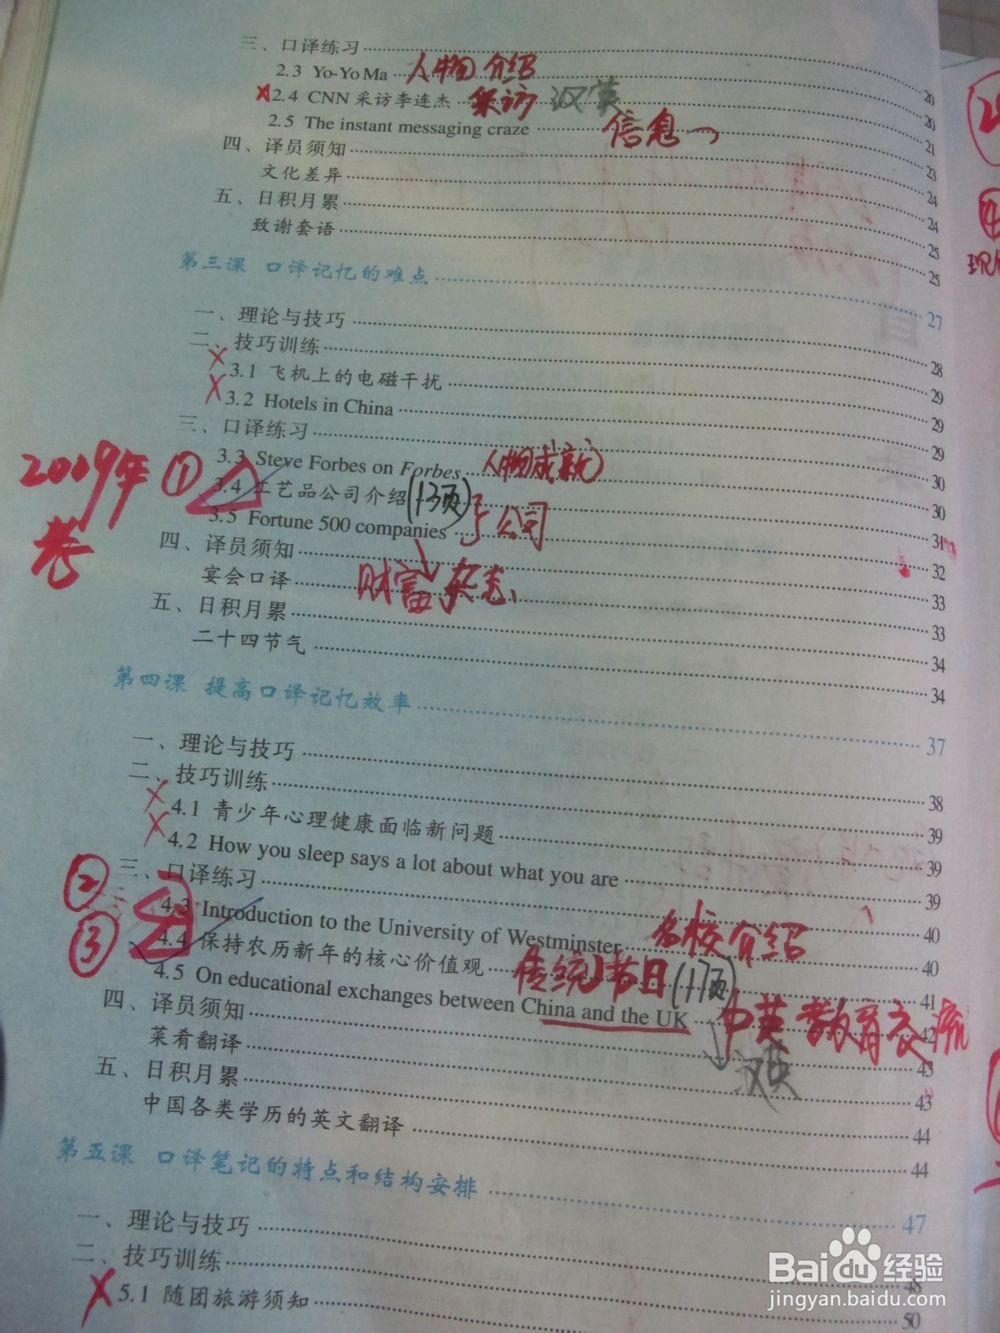 三、口译练习 20
2.3 Yo-Yo Ma 人物介绍 20
×2.4 CNN 采访李连杰 采访 汉英 21
2.5 The instant messaging craze 信息 23
四、译员须知 24
文化差异 24
五、日积月累 25
致谢套语 25
第三课 口译记忆的难点 27
一、理论与技巧 28
二、技巧训练 29
×3.1 飞机上的电磁干扰 29
×3.2 Hotels in China 29
三、口译练习 30
3.3 Steve Forbes on Forbes 人物(成就) 30
2009年卷 ① 3.4 工艺品公司介绍 (13页) 31
3.5 Fortune 500 companies 公司 32
四、译员须知 33
财富杂志
宴会口译 33
五、日积月累 34
二十四节气 34
第四课 提高口译记忆效率 37
一、理论与技巧 38
二、技巧训练 39
×4.1 青少年心理健康面临新问题 39
×4.2 How you sleep says a lot about what you are 39
三、口译练习 40
② 4.3 Introduction to the University of Westminster 名校介绍 40
③ 4.4 保持农历新年的核心价值观 传统节日 (17页) 41
4.5 On educational exchanges between China and the UK 中英教育交流 汉英 42
四、译员须知 43
菜肴翻译 43
五、日积月累 44
中国各类学历的英文翻译 44
第五课 口译笔记的特点和结构安排 47
一、理论与技巧 48
二、技巧训练 50
×5.1 随团旅游须知
Baidu 经验
jingyan.baidu.com